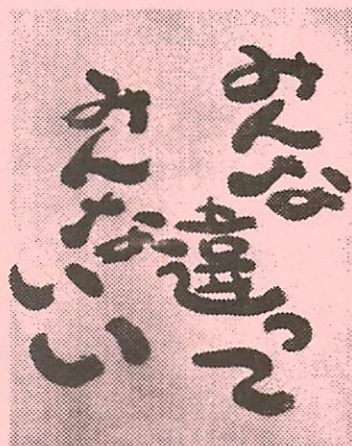 みんな違って
みんないい